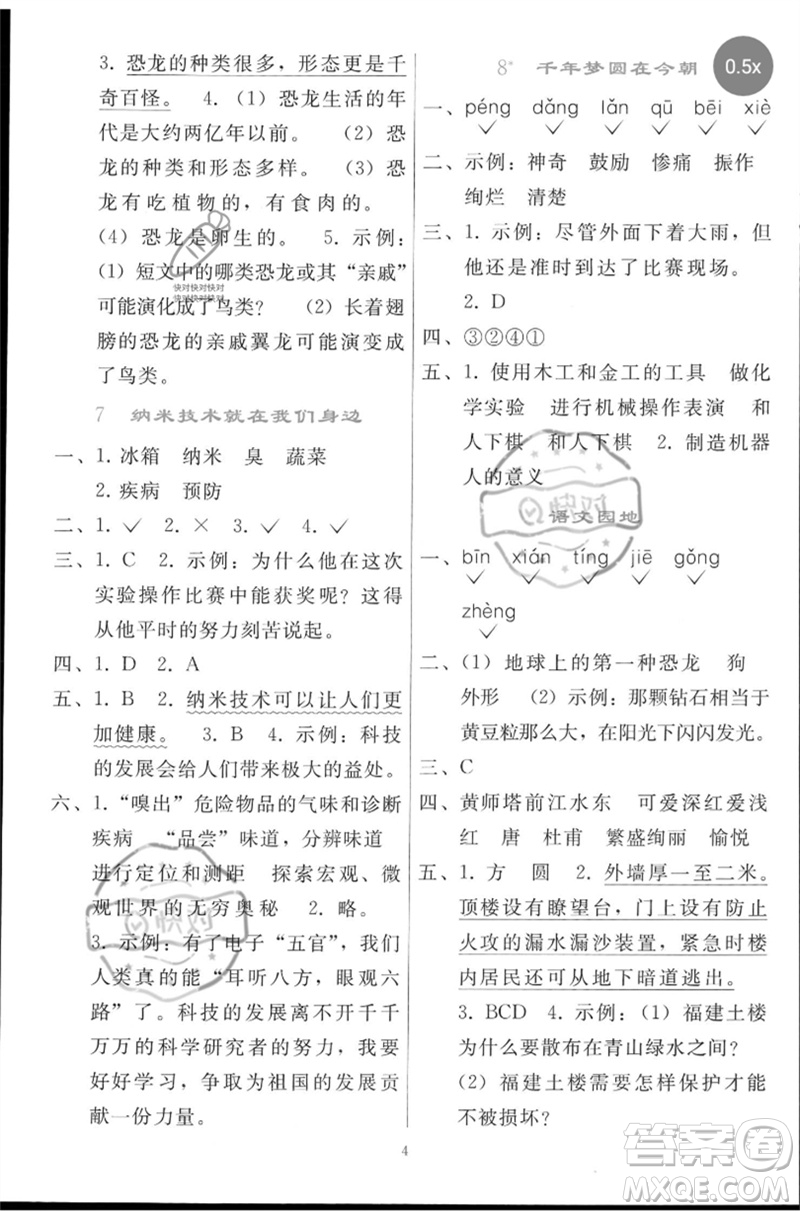 3. 恐龙的种类很多，形态更是千
奇百怪。 4. （1）恐龙生活的年
代是大约两亿年以前。 （2）恐
龙的种类和形态多样。 （3）恐
龙有吃植物的，有食肉的。
（4）恐龙是卵生的。 5. 示例：
（1）短文中的哪类恐龙及其“亲戚”
可能演化成了鸟类？ （2）长着翅
膀的恐龙的亲戚翼龙可能演变成
了鸟类。
7 纳米技术就在我们身边
一、1. 冰箱 纳米 臭 蔬菜
2. 疾病 预防
二、1. ✓ 2. × 3. ✓ 4. ✓
三、1. C 2. 示例：为什么他在这次
实验操作比赛中能获奖呢？这得
从他平时的努力刻苦说起。
四、1. D 2. A
五、1. B 2. 纳米技术可以让人们更
加健康。 3. B 4. 示例：科技
的发展会给人们带来极大的益处。
六、1. “嗅出”危险物品的气味和诊断
疾病 “品尝”味道，分辨味道
进行定位和测距 探索宏观、微
观世界的无穷奥秘 2. 略。
3. 示例：有了电子“五官”，我们
人类真的能“耳听八方，眼观六
路”了。科技的发展离不开千千
万万的科学研究者的努力，我要
好好学习，争取为祖国的发展贡
献一份力量。
8* 千年梦圆在今朝
0.5x
一、péng dǎng lǎn qū bēi xiè
✓ ✓ ✓ ✓ ✓ ✓
二、示例：神奇 鼓励 惨痛 振作
绚烂 清楚
三、1. 示例：尽管外面下着大雨，但
他还是准时到达了比赛现场。
2. D
四、③②④①
五、1. 使用木工和金工的工具 做化
学实验 进行机械操作表演 和
人下棋 和人下棋 2. 制造机器
人的意义
语文园地
一、bīn xián tíng jiē gǒng
✓ ✓ ✓ ✓ ✓
zhèng
✓
二、（1）地球上的第一种恐龙 狗
外形 （2）示例：那颗钻石相当于
黄豆粒那么大，在阳光下闪闪发光。
三、C
四、黄师塔前江水东 可爱深红爱浅
红 唐 杜甫 繁盛绚丽 愉悦
五、1. 方 圆 2. 外墙厚一至二米。
顶楼设有瞭望台，门上设有防止
火攻的漏水漏沙装置，紧急时楼
内居民还可从地下暗道逃出。
3. BCD 4. 示例：（1）福建土楼
为什么要散布在青山绿水之间？
（2）福建土楼怎样保护才能
不被损坏？
4
快对快对快对
快对快对快对
快对
快对
答案卷
MXQE.COM